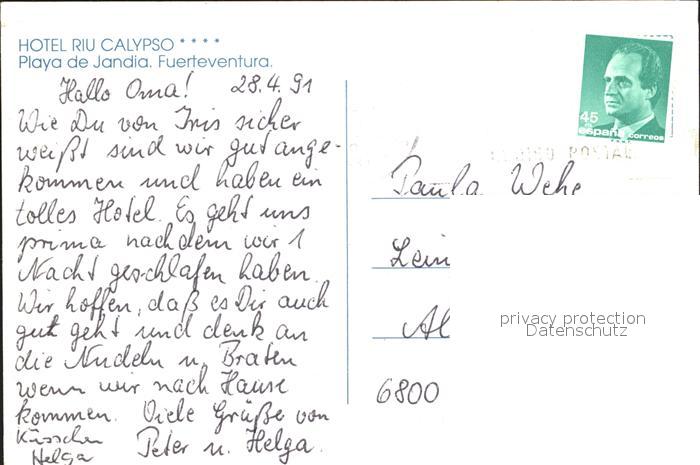 HOTEL RIU CALYPSO ****
Playa de Jandia. Fuerteventura.
Hallo Oma! 28.4.91
Wie Du von Iris sicher
weißt sind wir gut ange-
kommen und haben ein
tolles Hotel. Es geht uns
prima nachdem wir 1
Nacht geschlafen haben.
Wir hoffen, daß es Dir auch
gut geht und denk an
die Nudeln u. Braten
wenn wir nach Hause
kommen. Viele Grüße von
Küsschen Peter u. Helga.
Helga
45
españa correos
POSTAL
Paula Wehe
Lein
Al
6800
privacy protection
Datenschutz